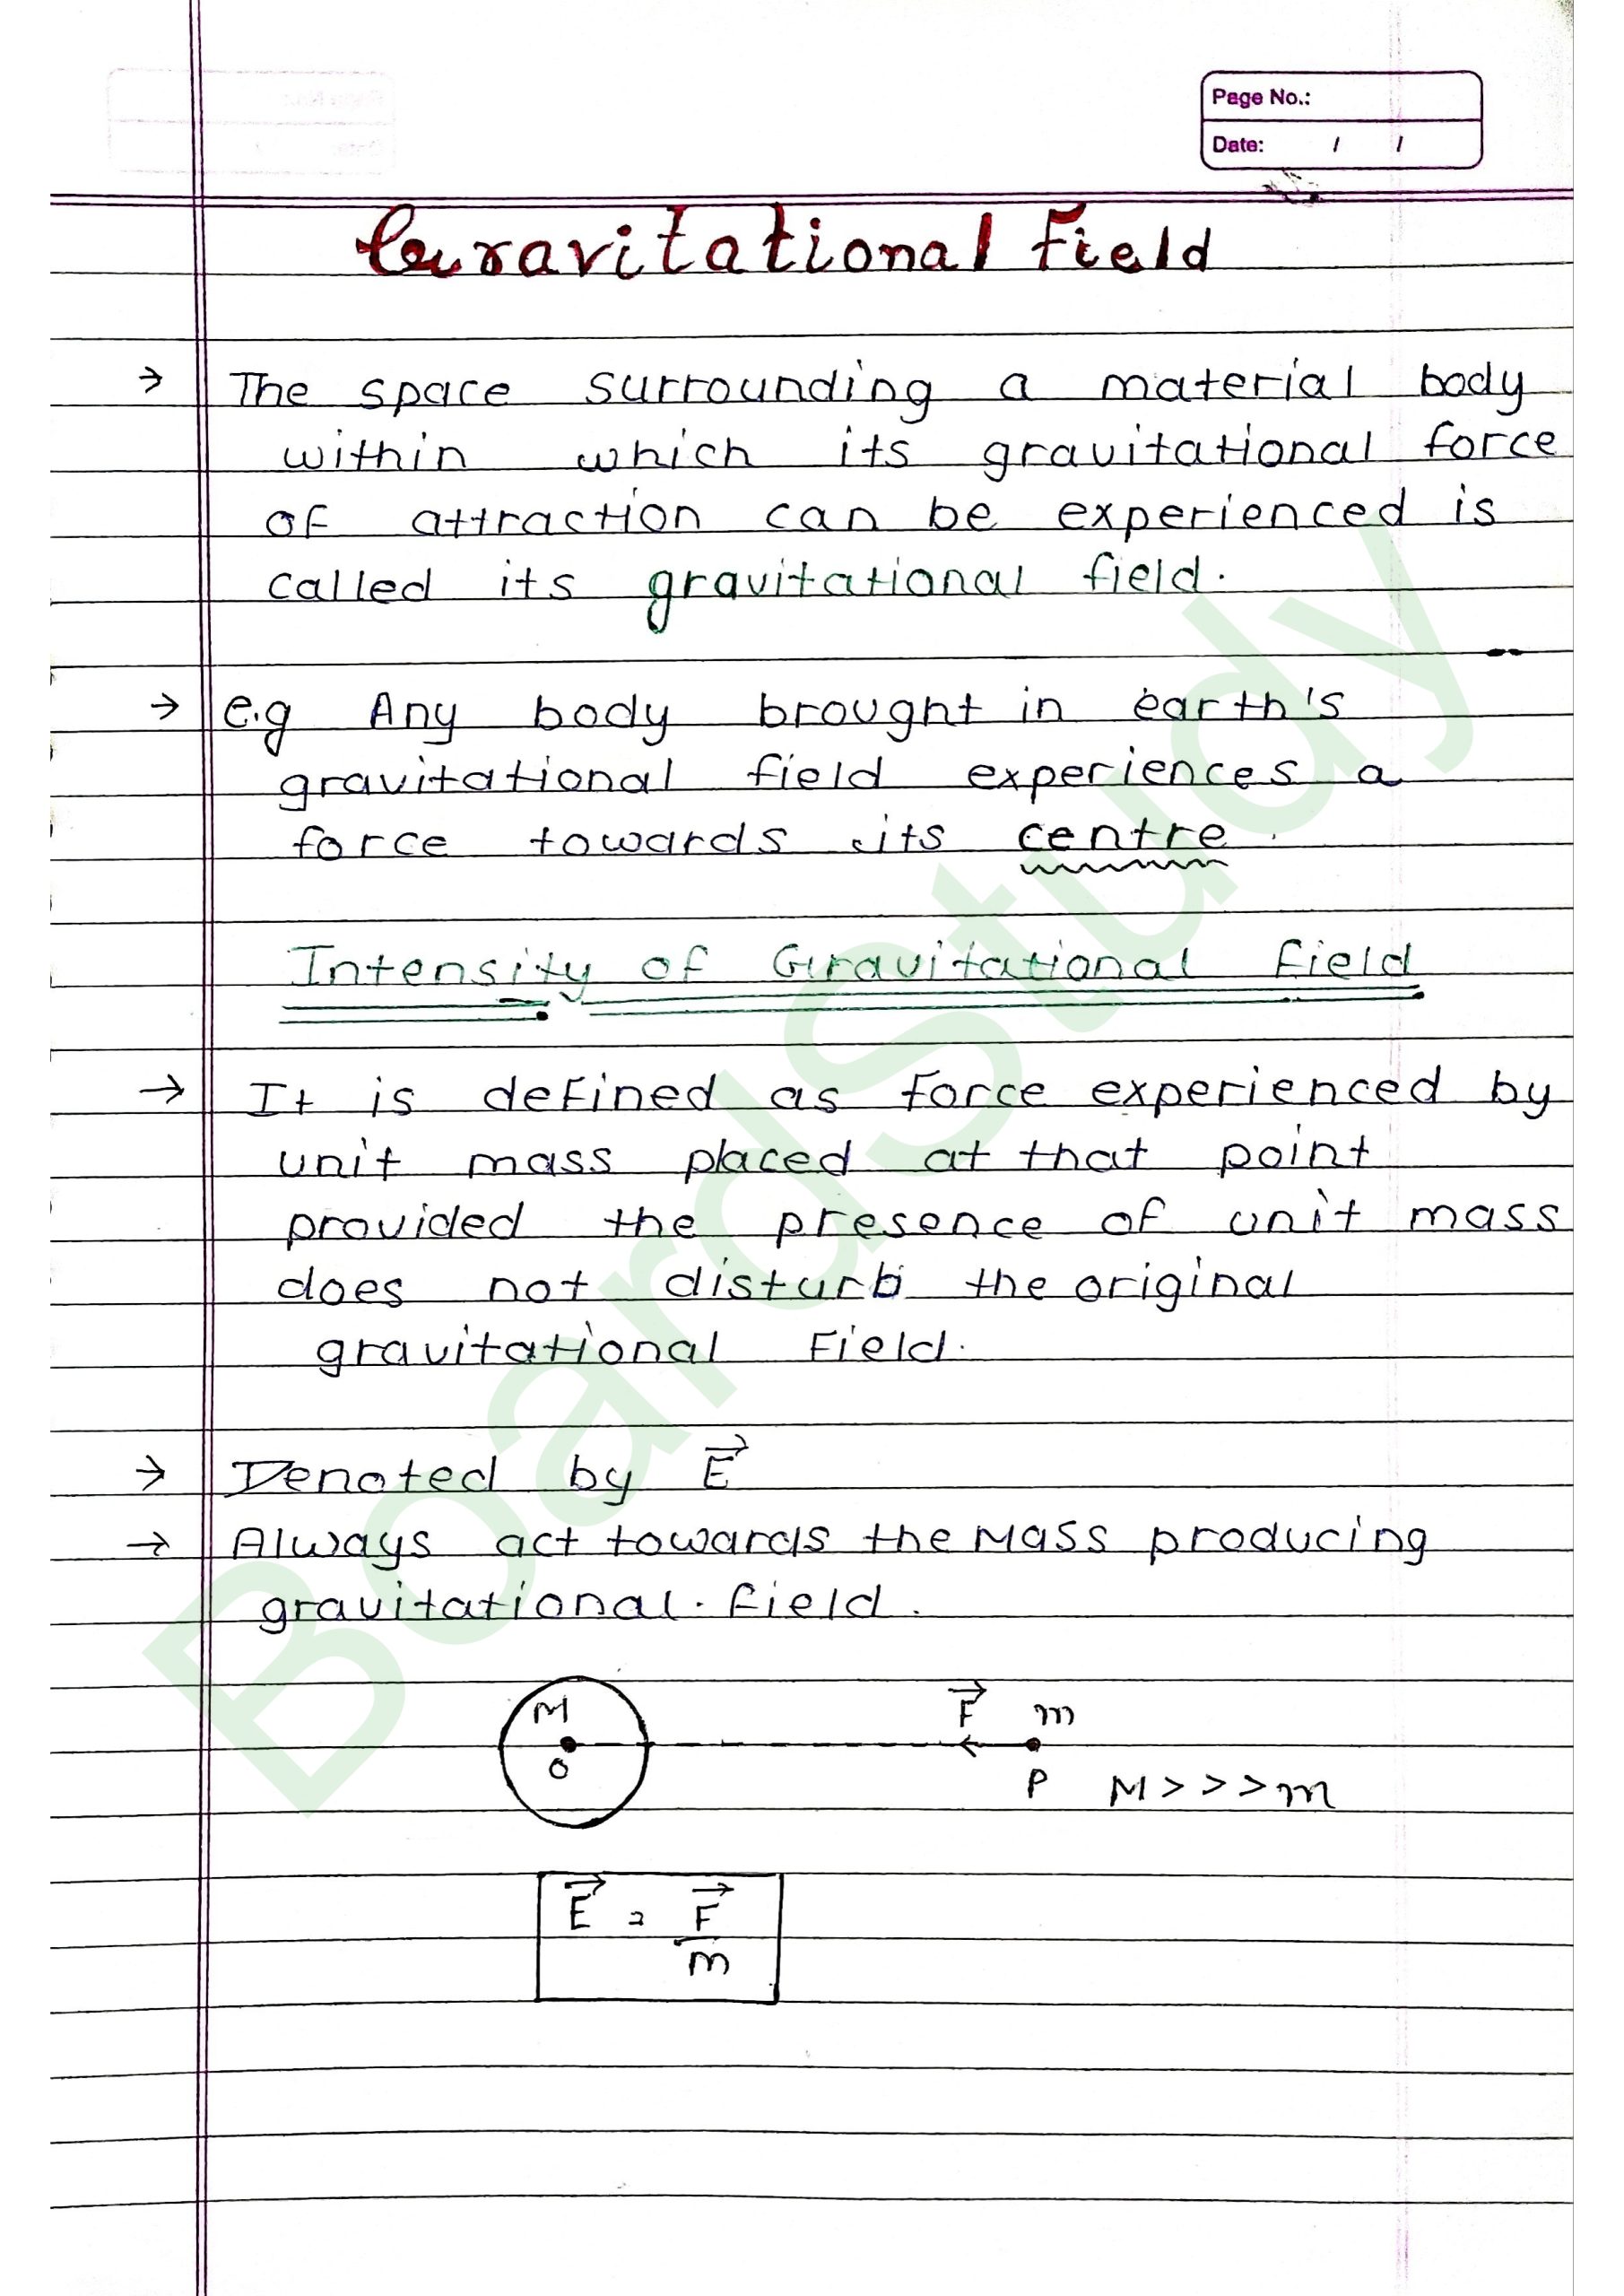 Page No.:
Date: / /
Gravitational Field
→ The space surrounding a material body
within which its gravitational force
of attraction can be experienced is
called its gravitational field.
→ e.g Any body brought in earth's
gravitational field experiences a
force towards its centre.
Intensity of Gravitational Field
→ It is defined as force experienced by
unit mass placed at that point
provided the presence of unit mass
does not disturb the original
gravitational Field.
→ Denoted by E⃗
→ Always act towards the Mass producing
gravitational. field.
M F⃗ m
O P M > > > m
E⃗ = F⃗
m
BoardStudy